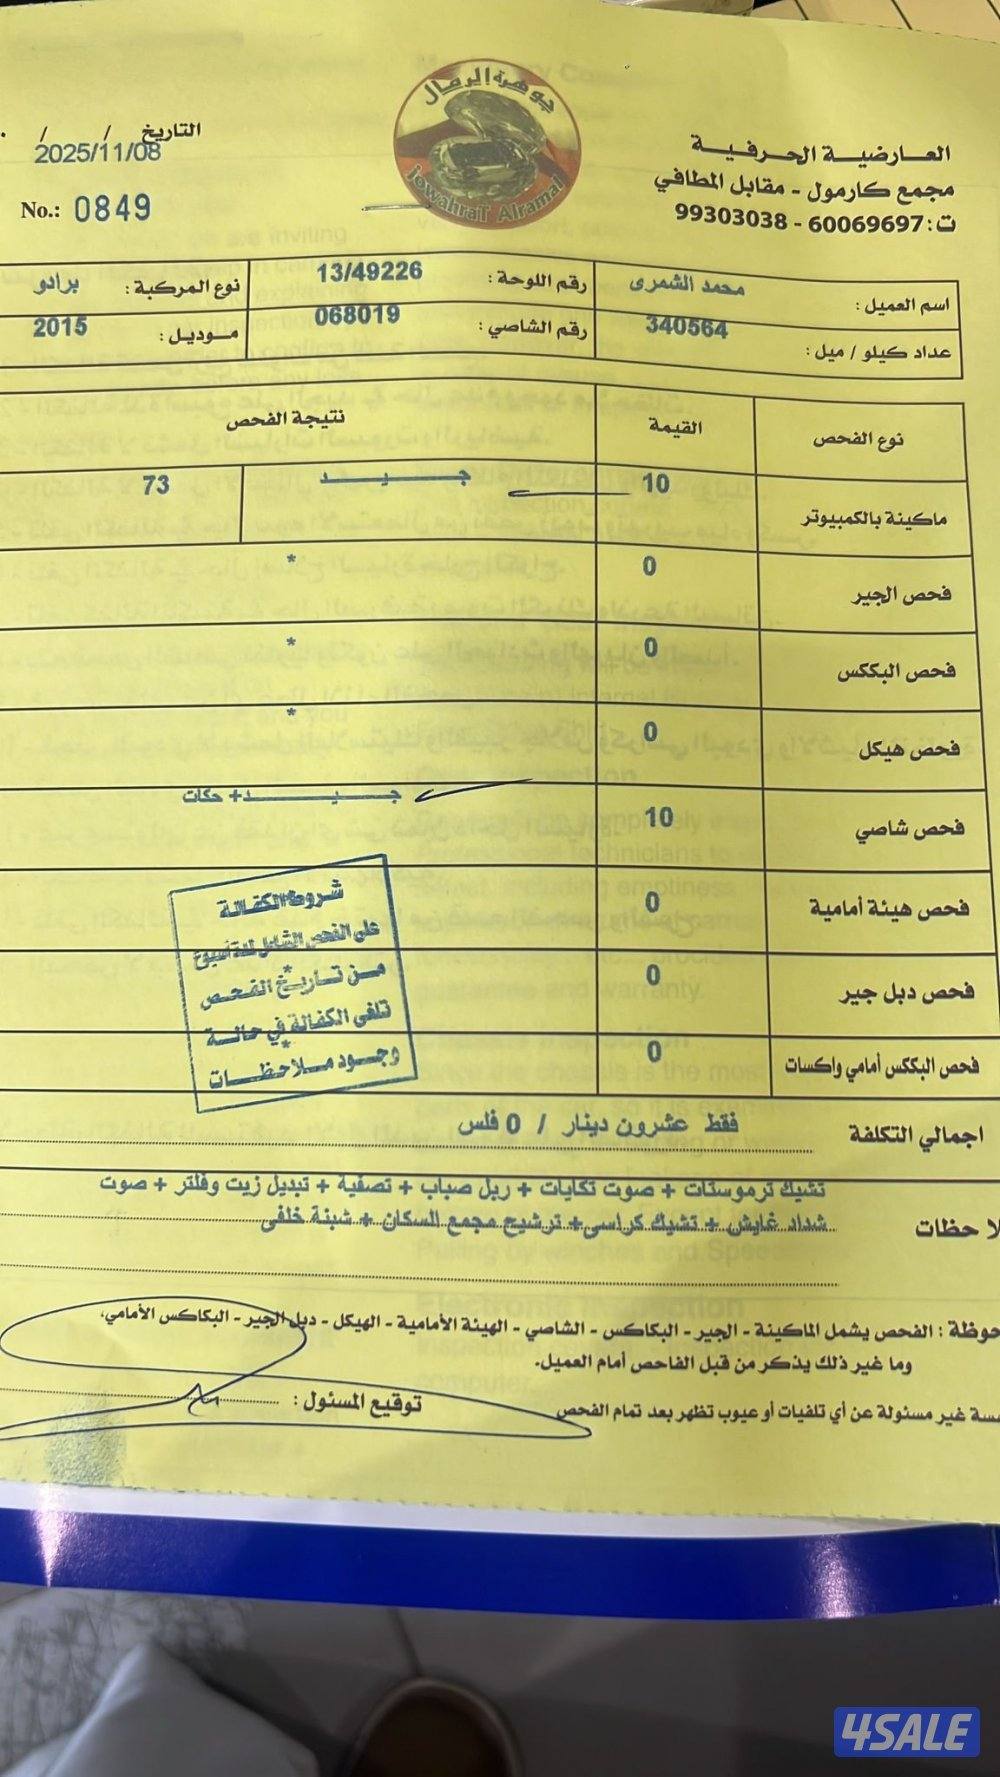 جوهرة الرمال
JowahraT Alramal
العارضية الحرفية
مجمع كارمول - مقابل المطافي
ت: 60069697 - 99303038
التاريخ / /
2025/11/08
No.: 0849
اسم العميل: محمد الشمرى
رقم اللوحة: 13/49226
نوع المركبة: برادو
عداد كيلو / ميل: 340564
رقم الشاصي: 068019
موديل: 2015
نوع الفحص القيمة نتيجة الفحص
ماكينة بالكمبيوتر 10 جـيـد 73
فحص الجير 0 *
فحص البككس 0 *
فحص هيكل 0 *
فحص شاصي 10 جـيـد+ حكات
فحص هيئة أمامية 0
فحص دبل جير 0 *
فحص البككس أمامي واكسات 0 *
شروط الكفالة
على الفحص الشامل لمدة أسبوع
من تاريخ الفحص
تلغى الكفالة في حالة
وجود ملاحظات
اجمالي التكلفة فقط عشرون دينار / 0 فلس
لاحظات تشيك ترموستات + صوت تكايات + ربل صباب + تصفية + تبديل زيت وفلتر + صوت
شداد غايش + تشيك كراسى+ ترشيح مجمع السكان + شبنة خلفى
حوظة : الفحص يشمل الماكينة - الجير - البكاكس - الشاصي - الهيئة الأمامية - الهيكل - دبل الجير - البكاكس الأمامي،
وما غير ذلك يذكر من قبل الفاحص أمام العميل.
سة غير مسئولة عن أي تلفيات أو عيوب تظهر بعد تمام الفحص
توقيع المسئول:
4SALE